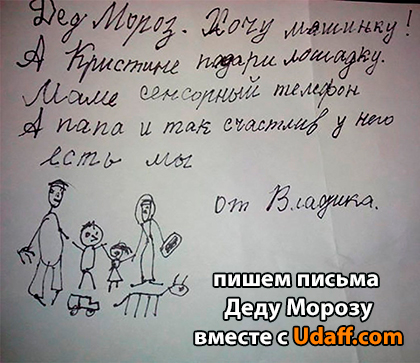 Дед Мороз. Хочу машинку!
А Кристине падари лошадку.
Маме сенсорный телефон
А папа и так счастлив у него
есть мы
от Владика.
пишем письма
Деду Морозу
вместе с Udaff.com